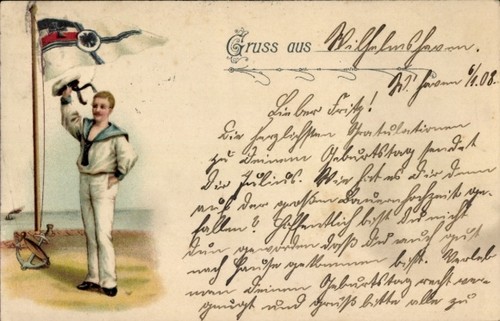 Gruss aus Wilhelmshaven.
W'haven 6/1.08.
Lieber Fritz!
Die herzlichsten Gratulationen
zu Deinem Geburtstag sendet
Dir Julius. Wie hat es Dir denn
auf der großen Bauernhochzeit ge-
fallen? Hoffentlich bist Du nicht
dun geworden daß Du auch gut
nach Hause gekommen bist. Verleb
man Deinen Geburtstag recht ver-
gnügt und grüß bitte alle zu